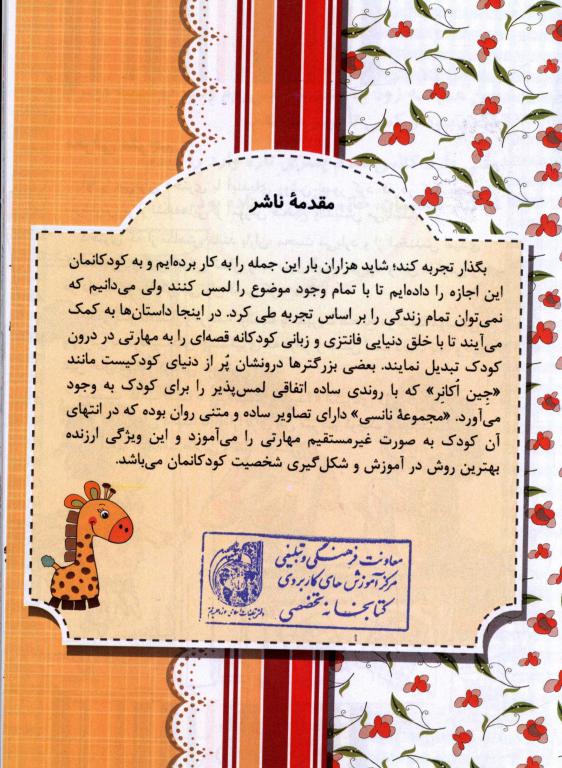 مقدمهٔ ناشر
بگذار تجربه کند؛ شاید هزاران بار این جمله را به کار برده‌ایم و به کودکانمان
این اجازه را داده‌ایم تا با تمام وجود موضوع را لمس کنند ولی می‌دانیم که
نمی‌توان تمام زندگی را بر اساس تجربه طی کرد. در اینجا داستان‌ها به کمک
می‌آیند تا با خلق دنیایی فانتزی و زبانی کودکانه قصه‌ای را به مهارتی در درون
کودک تبدیل نمایند. بعضی بزرگترها درونشان پُر از دنیای کودکیست مانند
«جِین اُکانِر» که با روندی ساده اتفاقی لمس‌پذیر را برای کودک به وجود
می‌آورد. «مجموعهٔ نانسی» دارای تصاویر ساده و متنی روان بوده که در انتهای
آن کودک به صورت غیرمستقیم مهارتی را می‌آموزد و این ویژگی ارزنده
بهترین روش در آموزش و شکل‌گیری شخصیت کودکانمان می‌باشد.
معاونت فرهنگی و تبلیغی
مرکز آموزش های کاربردی
کتابخانه تخصصی
دفتر تبلیغات اسلامی حوزه علمیه قم
۱